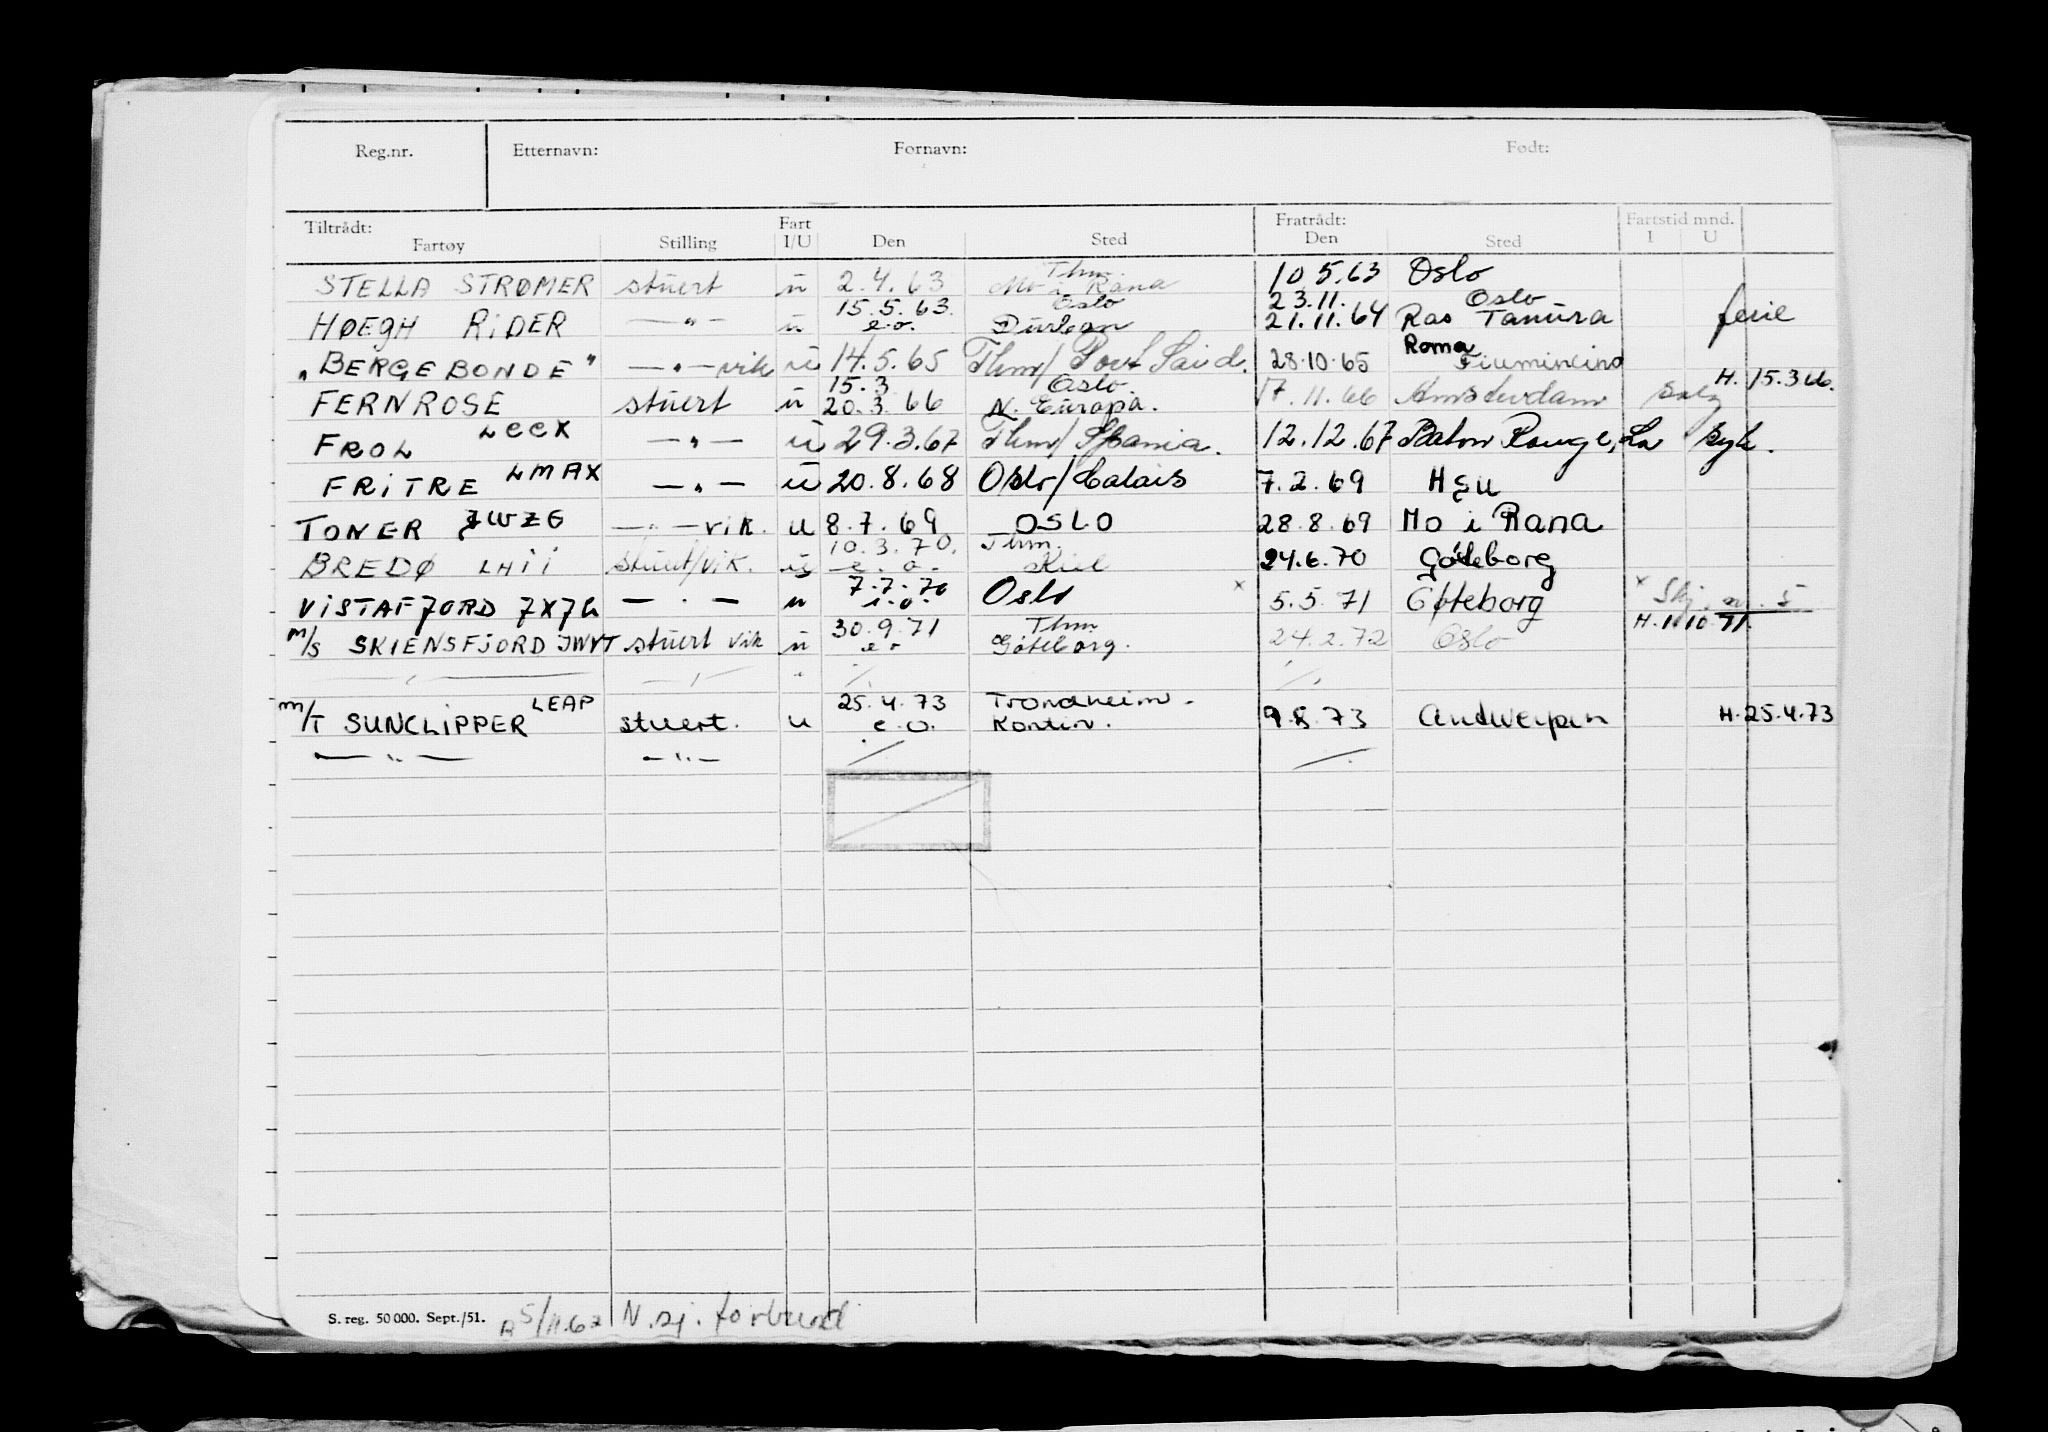 Reg.nr. Etternavn: Fornavn: Født:
Tiltrådt: Fart Fratrådt: Fartstid mnd.
Fartøy Stilling I/U Den Sted Den Sted I U
Thm.
STELLA STRØMER stuert u 2.4.63 Mo i Rana 10.5.63 Oslo
15.5.63. Oslo 23.11. Oslo
HØEGH RIDER — " — u e.o. Durban 21.11.64 Ras Tanura ferie
Roma
"BERGEBONDE" — " — vik u 14.5.65 Thm/ Port Said. 28.10.65 Fiumincino
15.3 Oslo. H. 15.3.66.
FERNROSE stuert u 20.3.66 N. Europa. 17.11.66 Amsterdam salg
FROL LCCX — " — u 29.3.67 Thm/ Spania. 12.12.67 Baton Rouge, La syk.
FRITRE LMAX — " — u 20.8.68 Oslo/Calais 7.2.69 Hgu
TONER JWZG — " — vik. u 8.7.69 OSLO 28.8.69 Mo i Rana
10.3.70. Thm.
BREDØ LHII stuert/vik. u e.o. Kiel 24.6.70 Gøteborg
7.7.70
VISTAFJORD — " — u Oslo x 5.5.71 Gøteborg x
30.9.71 Thm H. 1.10.71.
m/s SKIENSFJORD JWVT stuert vik u e.o Göteborg. 24.2.72 Oslo
LEAP 25.4.73 Trondheim.
m/T SUNCLIPPER stuert. u e.o. Kontin. 9.8.73 Antwerpen H. 25.4.73
— " — — " —
S. reg. 50 000. Sept./51. N. sj. forbund